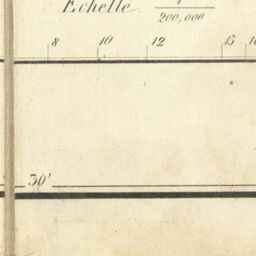 Echelle 1/200,000
8 10 12 15
30'